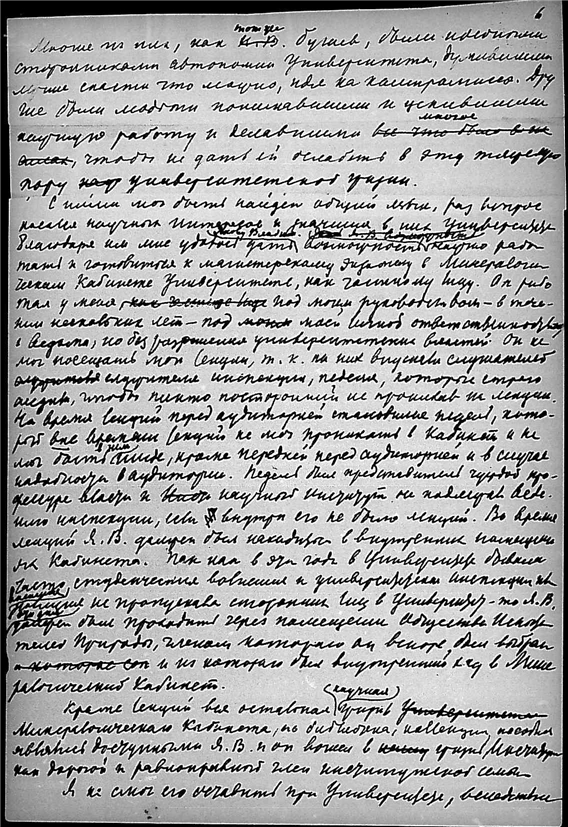 6
Многие из них, как тот же Н.В. Бугаев, были искренними
сторонниками автономии Университета, думавшими
лучше спасти что можно, идя на компромиссы. Дру
гие были людьми понимавшими и ценившими
научную работу и делавшими многое
чтобы не дать ей ослабеть в эту тяжелую
пору университетской жизни.
С ними мог быть найден общий язык, раз вопрос
касался научных интересов и значения в них Университета
Благодаря им мне удалось дать возможность научно рабо
тать и готовиться к магистерскому экзамену в Минералоги
ческом Кабинете Университета, как частному лицу. Он рабо
тал у меня под моим руководством - в тече-
нии нескольких лет - под моей личной ответственностью
с ведома, но без разрешения университетских властей. Он не
мог посещать мои лекции, т. к. на них впускали слушателей
служители инспекции, педеля, которые строго
следили, чтобы никто посторонний не проникал на лекции.
На время лекций перед аудиторией становился педель, кото-
рый вне времени лекций не мог проникать в Кабинет и не
мог быть там, кроме передней перед аудиторией и в случае
надобности в аудитории. Педель был представителем чуждой про-
фессуре власти и научный институт не подлежал веде-
нию инспекции, если внутри его не было лекций. Во время
лекций Я. В. должен был находиться во внутренних помещени
ях Кабинета. Так как в эти годы в Университете бывали
часто студенческие волнения и университетская инспекция
и полиция не пропускала сторонних лиц в Университет - то Я. В.
должен был проходить через помещения Общества Испыта
телей Природы, членом которого он вскоре был выбран
и из которого был внутренний ход в Мине
ралогический Кабинет.
Кроме лекций вся остальная научная жизнь
Минералогического Кабинета, его библиотека, коллекции, пособия
являлись доступными Я. В. и он вошел в жизнь Института
как дорогой и равноправный член институтской семьи
Я не смог его оставить при Университете, вследствие